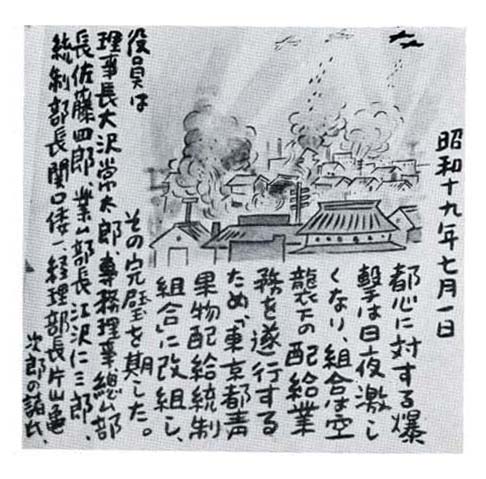 昭和十九年七月一日
都心に対する爆
撃は日夜激し
くなり、組合は空
襲下の配給業
務を遂行する
ため「東京都青
果物配給統制
組合」に改組し、
その完璧を期した。
役員は
理事長大沢常太郎、専務理事、総ム部
長佐藤四郎、業ム部長江沢仁三郎、
統制部長関口倭一、経理部長片山亀
次郎の諸氏、